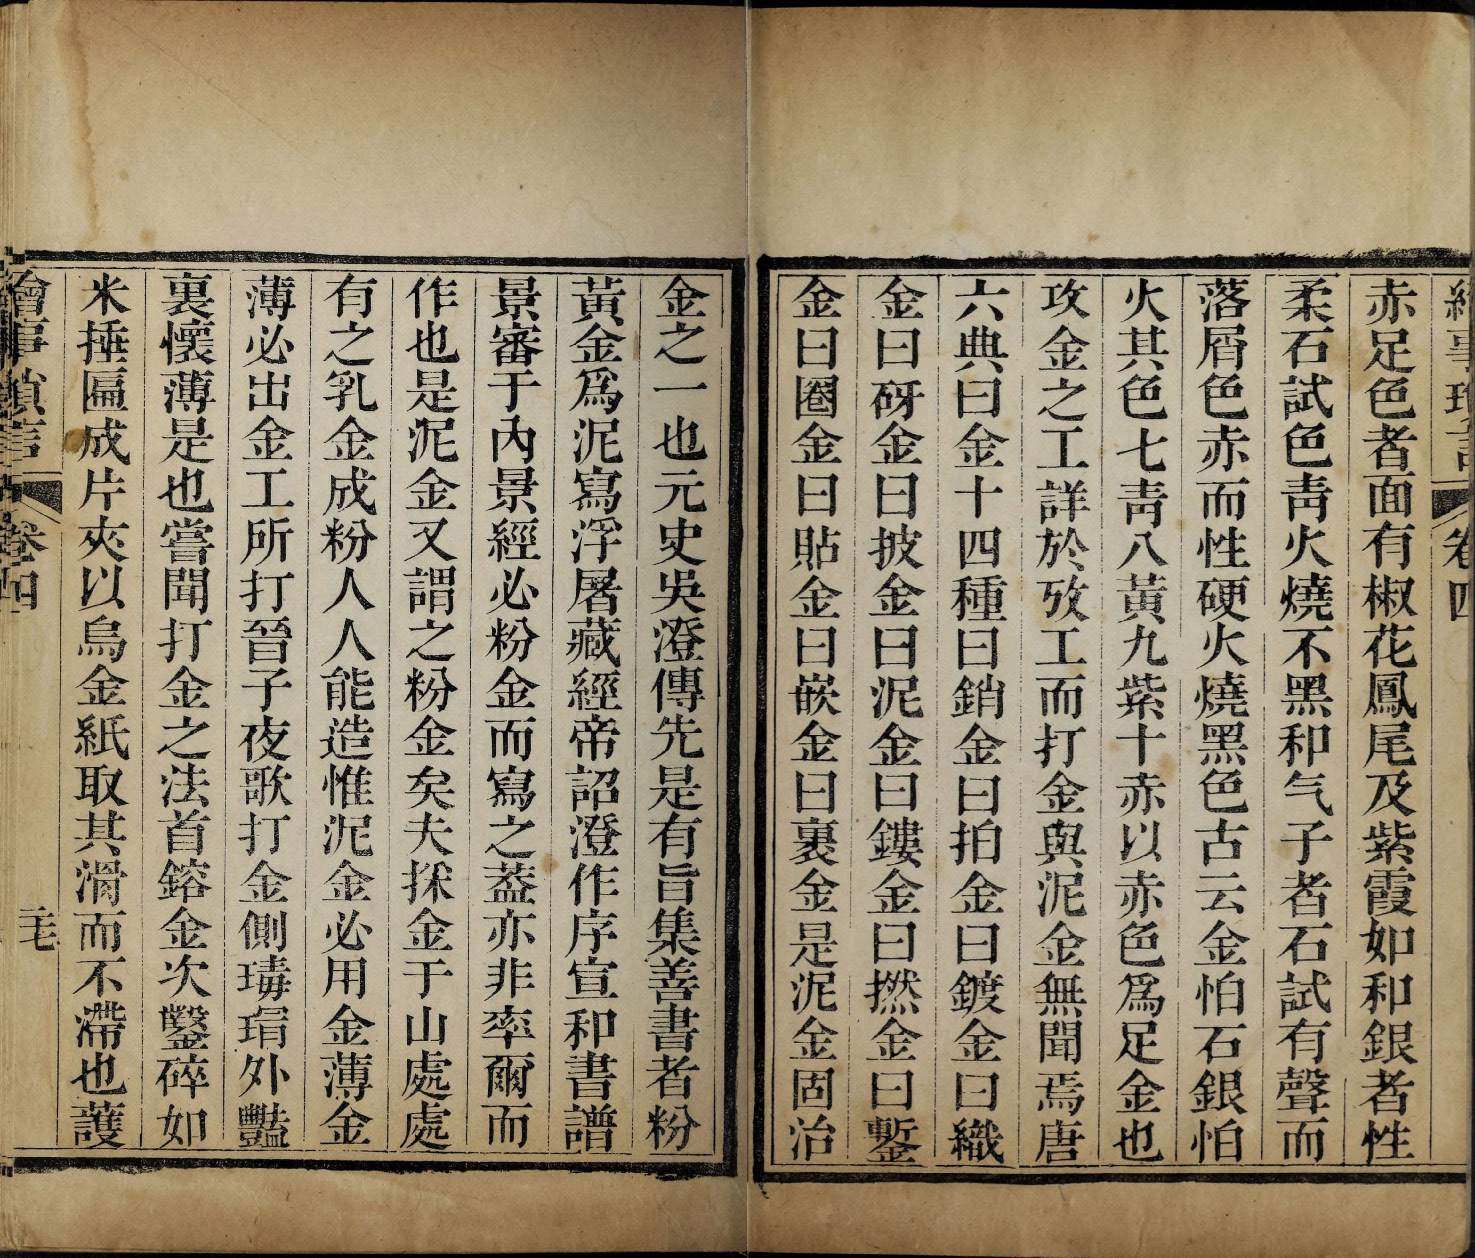 繪事瑣言 卷四
赤足色者面有椒花鳳尾及紫霞如和銀者性
柔石試色靑火燒不黑和气子者石試有聲而
落屑色赤而性硬火燒黑色古云金怕石銀怕
火其色七靑八黃九紫十赤以赤色爲足金也
攻金之工詳於攷工而打金與泥金無聞焉唐
六典曰金十四種曰銷金曰拍金曰鍍金曰織
金曰砑金曰披金曰泥金曰鏤金曰撚金曰鏨
金曰圈金曰貼金曰嵌金曰裹金是泥金固治
金之一也元史吳澄傳先是有旨集善書者粉
黃金爲泥寫浮屠藏經帝詔澄作序宣和書譜
景審于內景經必粉金而寫之葢亦非率爾而
作也是泥金又謂之粉金矣夫採金于山處處
有之乳金成粉人人能造惟泥金必用金薄金
薄必出金工所打晉子夜歌打金側瑇瑁外豔
裏懷薄是也嘗聞打金之法首鎔金次鑿碎如
米捶匾成片夾以烏金紙取其滑而不滯也護
繪事瑣言 卷四 二七